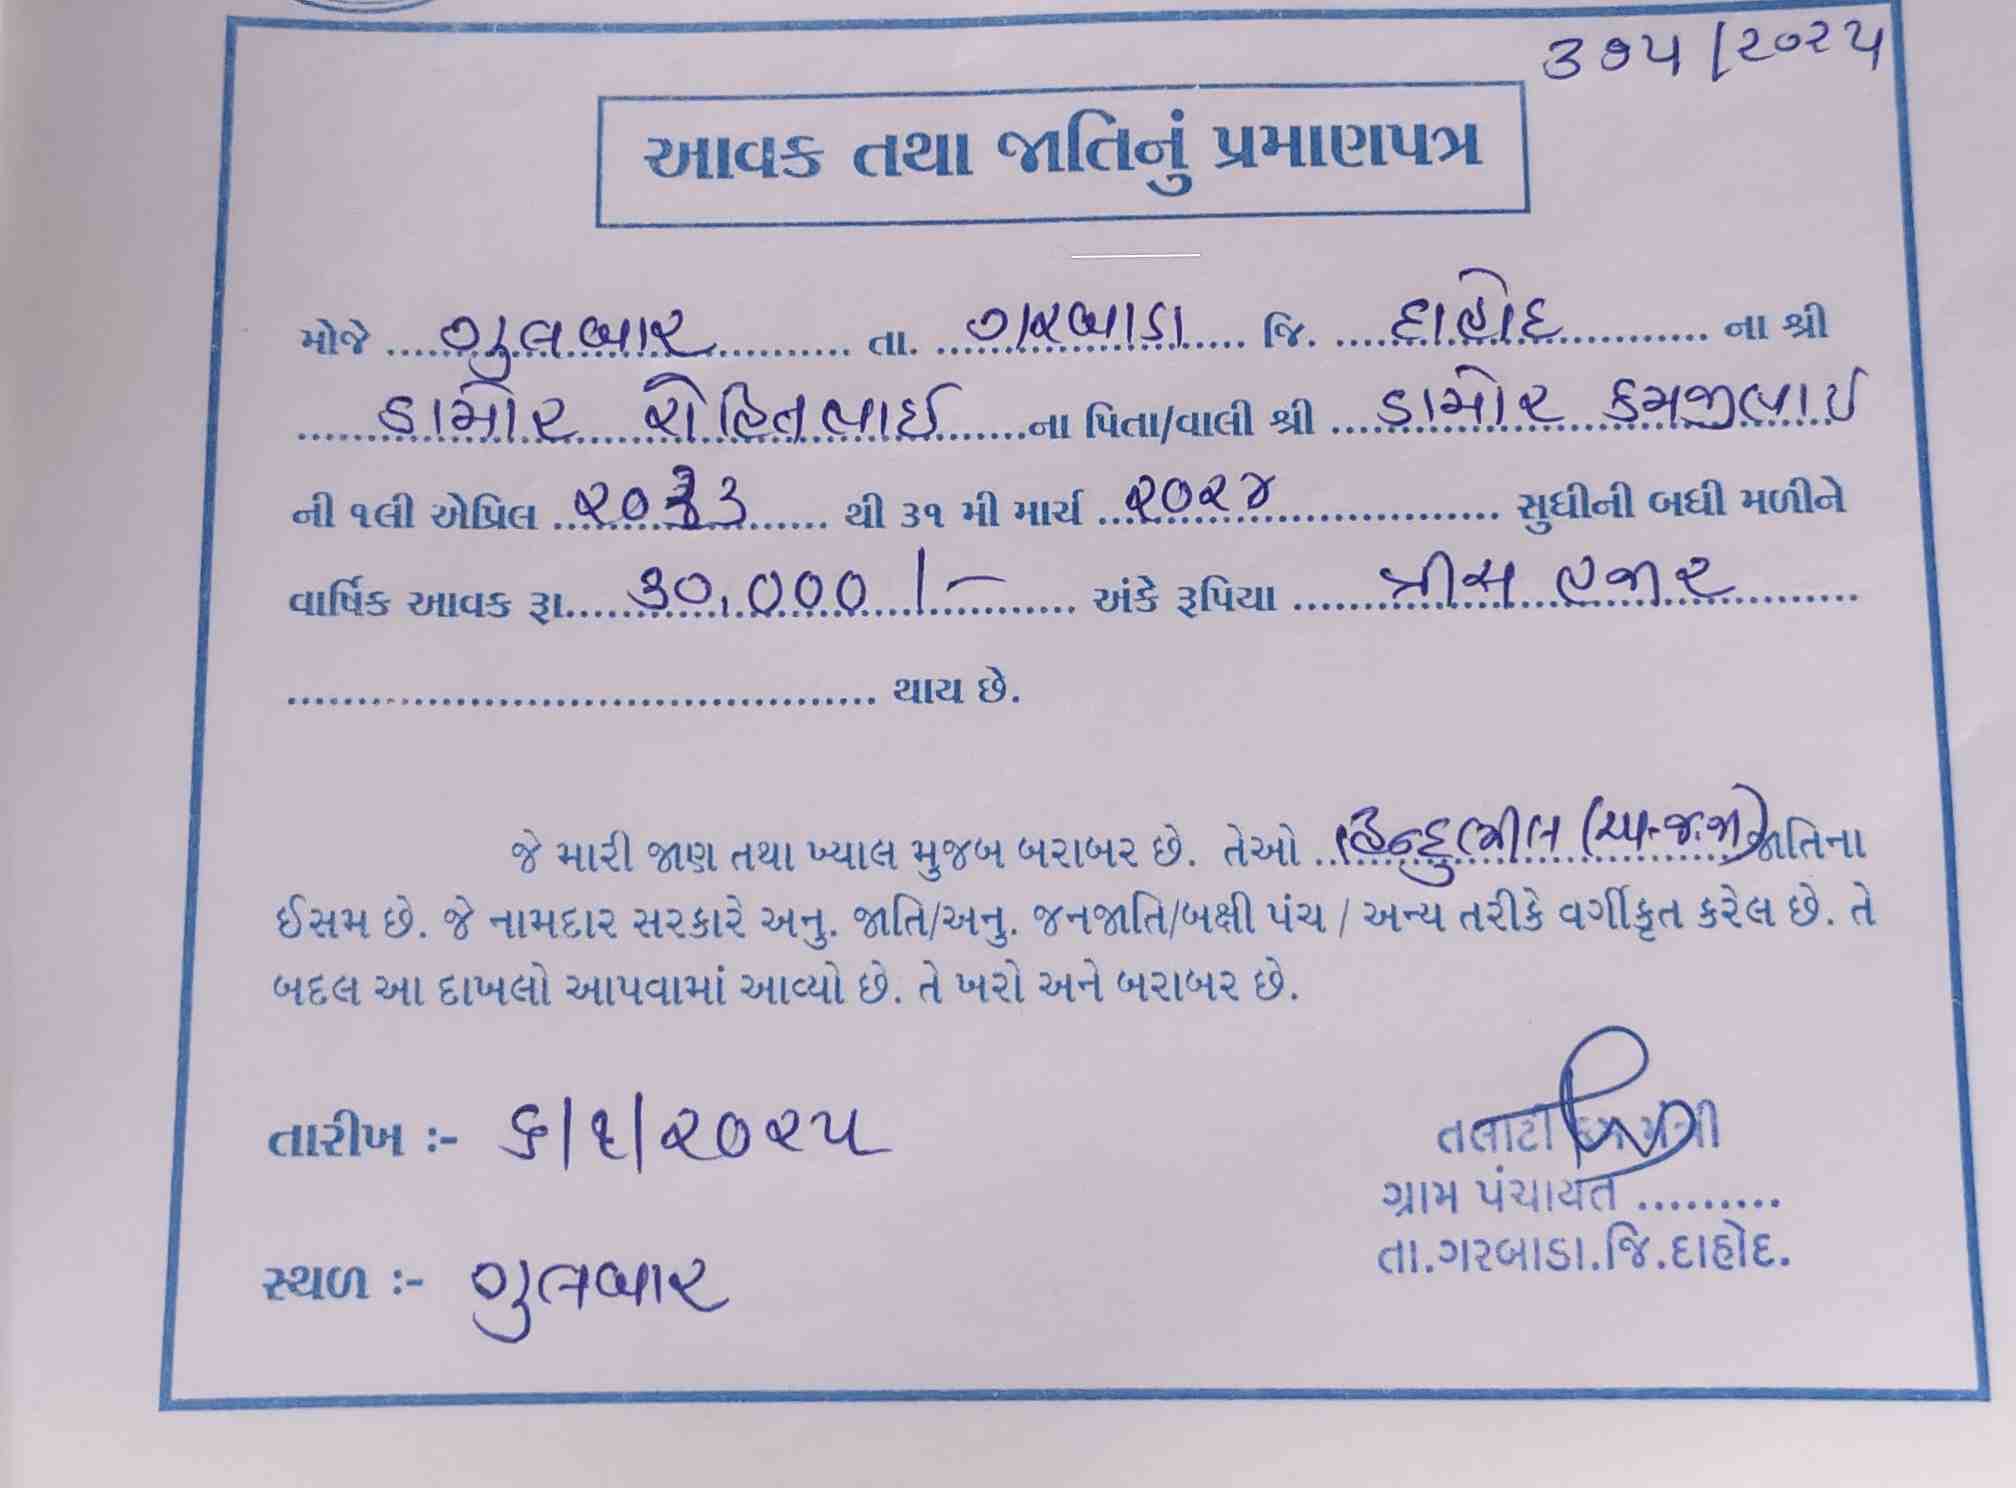 ૩૭૫/૨૦૨૫
આવક તથા જાતિનું પ્રમાણપત્ર
મોજે ગુલબાર તા. ગરબાડા જિ. દાહોદ ના શ્રી
ડામોર રોહિતભાઈ ના પિતા/વાલી શ્રી ડામોર કમજીભાઈ
ની ૧લી એપ્રિલ ૨૦૨૩ થી ૩૧ મી માર્ચ ૨૦૨૪ સુધીની બધી મળીને
વાર્ષિક આવક રૂા. ૩૦,૦૦૦/- અંકે રૂપિયા ત્રીસ હજાર
થાય છે.
જે મારી જાણ તથા ખ્યાલ મુજબ બરાબર છે. તેઓ હિન્દુભીલ (અ.જ.જા) જાતિના
ઈસમ છે. જે નામદાર સરકારે અનુ. જાતિ/અનુ. જનજાતિ/બક્ષી પંચ / અન્ય તરીકે વર્ગીકૃત કરેલ છે. તે
બદલ આ દાખલો આપવામાં આવ્યો છે. તે ખરો અને બરાબર છે.
તારીખ :- ૬/૧/૨૦૨૫
તલાટી કમ મંત્રી
ગ્રામ પંચાયત .........
તા.ગરબાડા.જિ.દાહોદ.
સ્થળ :- ગુલબાર